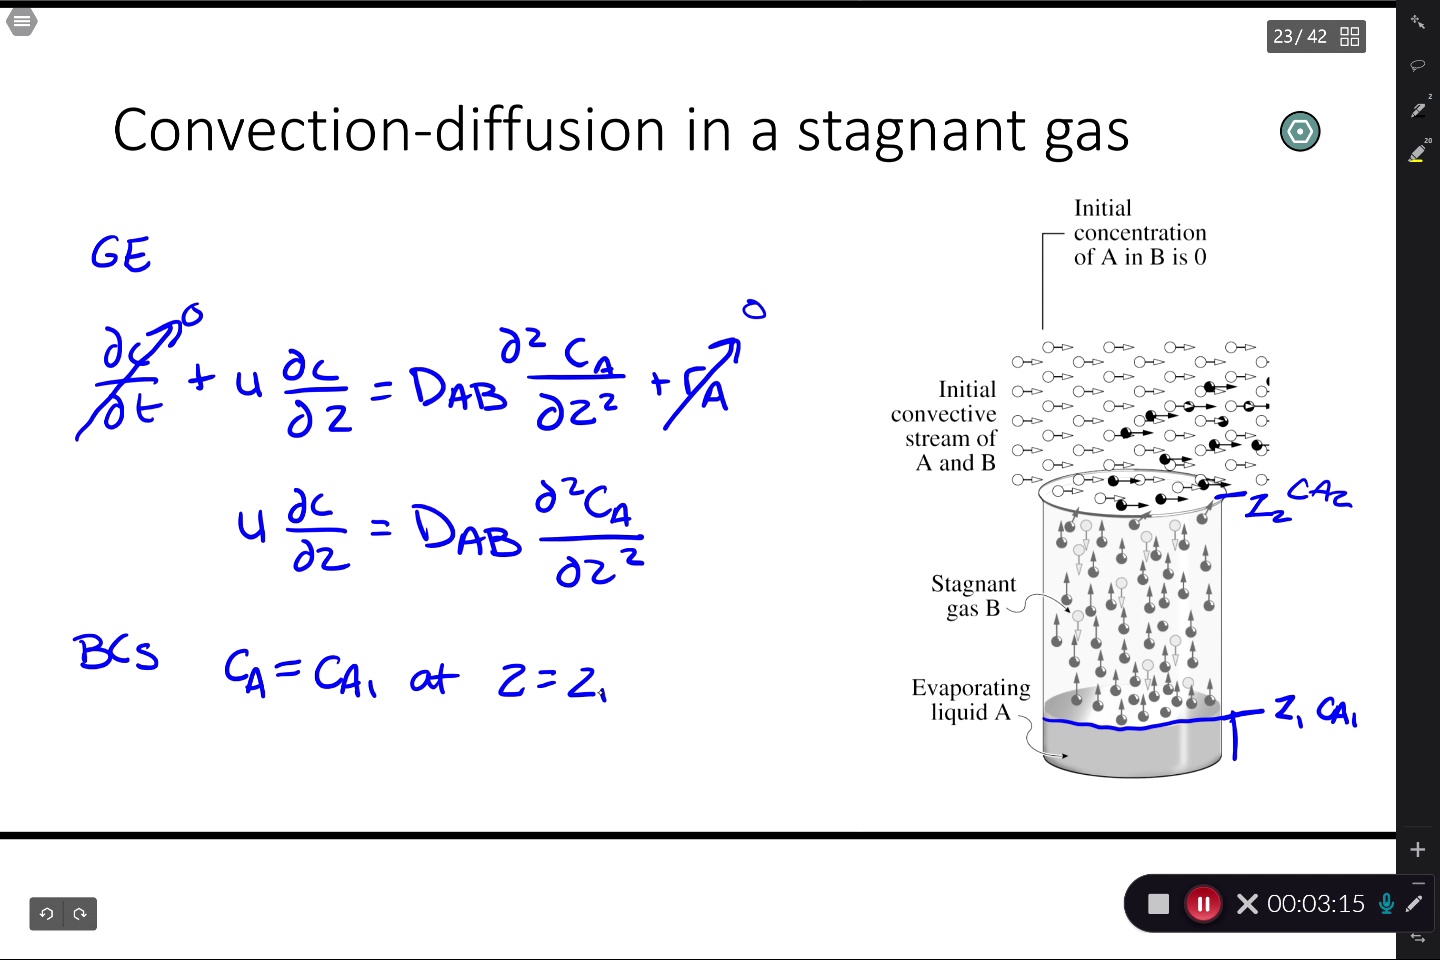 23/ 42
Convection-diffusion in a stagnant gas
GE
∂c/∂t → 0 + u ∂c/∂z = D_AB ∂²C_A/∂z² + r_A → 0
u ∂c/∂z = D_AB ∂²C_A/∂z²
BCs C_A = C_A1 at z = z1
Initial
concentration
of A in B is 0
Initial
convective
stream of
A and B
Z2 CA2
Stagnant
gas B
Evaporating
liquid A
Z1 CA1
2
20
00:03:15